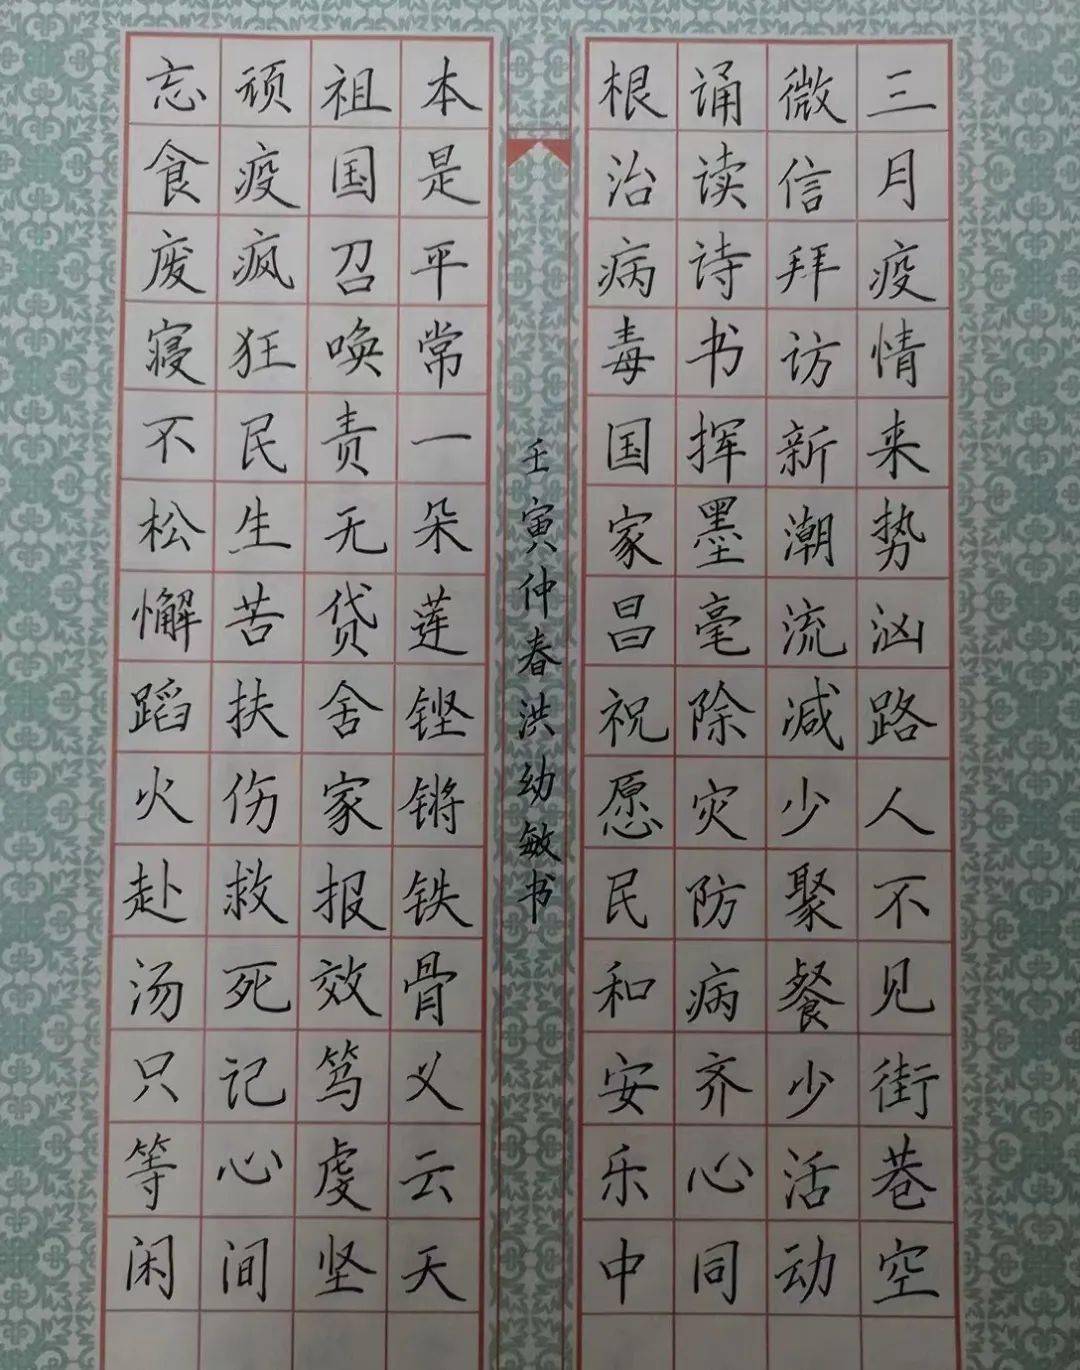 三月疫情来势汹路人不见街巷空
微信拜访新潮流减少聚餐少活动
诵读诗书挥墨毫除灾防病齐心同
根治病毒国家昌祝愿民和安乐中
壬寅仲春洪幼敏书
本是平常一朵莲铿锵铁骨义云天
祖国召唤责无贷舍家报效笃虔坚
顽疫疯狂民生苦扶伤救死记心间
忘食废寝不松懈蹈火赴汤只等闲